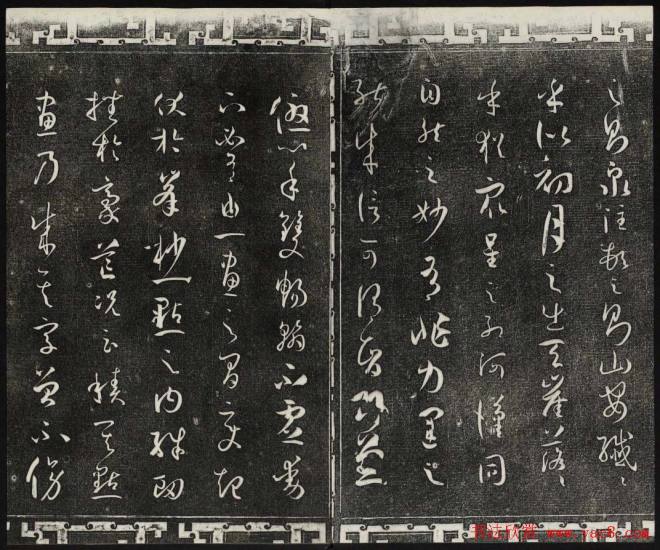 之則泉注頓之則山安纖〻
乎似初月之出天崖落〻
乎猶衆星之列河漢同
自然之妙有非力運之
能成信可謂智巧兼
優心手雙暢翰不虛動
下必有由一畫之間變起
伏於峯杪一點之內殊衄
挫於豪芒況云積其點
畫乃成其字曾不傍
书法欣赏 www.yac8.com